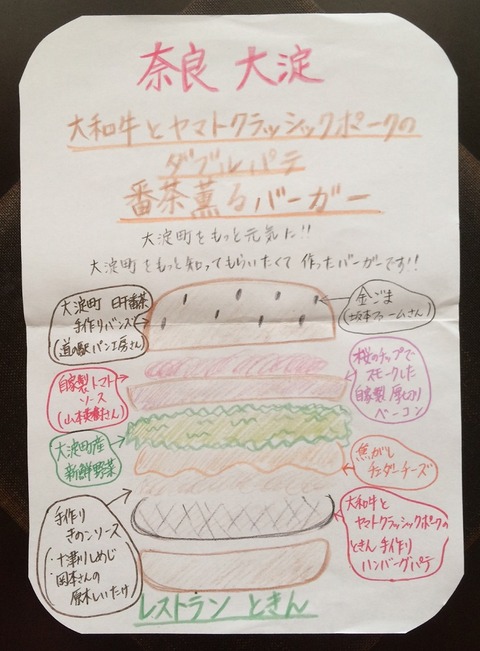 奈良 大淀
大和牛とヤマトクラッシックポークの
ダブルパテ
番茶薫るバーガー
大淀町をもっと元気に!!
大淀町をもっと知ってもらいたくて 作ったバーガーです!!
大淀町 日干番茶
手作りバンズ
(道の駅パン工房さん)
金ごま
(坂本ファームさん)
自家製トマト
ソース
(山本美樹さん)
桜のチップで
スモークした
自家製 厚切り
ベーコン
大淀町産
新鮮野菜
焦がし
チェダーチーズ
手作り
きのこソース
・十津川しめじ
・岡本さんの
原木しいたけ
大和牛と
ヤマトクラッシックポークの
ときん 手作り
ハンバーグパテ
レストラン ときん